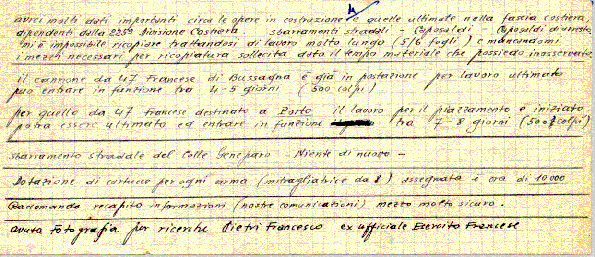 avrei molti dati importanti circa le opere in costruzione e quelle ultimate nella fascia costiera
dipendenti dalla 225ª Divisione Costiera sbarramenti stradali - Caposaldi - Caposaldi d'arresto
mi è impossibile ricopiare trattandosi di lavoro molto lungo (5/6 fogli) e mancandomi
i mezzi necessari per ricopiatura sollecita dato il tempo materiale che possiedo inosservato
il cannone da 47 Francese di Bussagna è già in postazione per lavoro ultimato
può entrare in funzione tra 4-5 giorni (500 colpi)
per quello da 47 francese destinato a Porto il lavoro per il piazzamento è iniziato
potrà essere ultimato ed entrare in funzione tra 7-8 giorni (500 colpi)
sbarramento stradale del Colle Niente di nuovo -
Dotazione di cartucce per ogni arma (mitragliatrice da 8) assegnata è ora di 10000
Raccomando recapito informazioni (nostre comunicazioni) mezzo molto sicuro.
avuta fotografia per ricerche Pietri Francesco ex ufficiale Esercito Francese